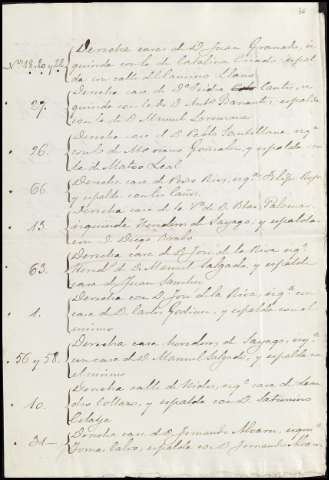 Derecha casa de D. Juan Granado, iz
Nos 18. 20 y 22. quierda con la de Catalina Criado, espal
da con calle del Camino Llano
Derecha casa de Da Isidra Cantes, iz
27. quierda con la de D. Anto Barrantes, espalda
con la de D. Manuel
Derecha casa de D. Pablo Santillana, izqa
26. con la de Mariano Gonzalez, y espalda con
la de Mateo Leal
Derecha casa de Pedro Rios, izqa Felipe
66. y espalda con los Caños.
Derecha casa de la Va de D. Blas Palomar
13. izquierda Herederos de Sayago, y espalda
con D. Diego Bravo
Derecha casa de D. José de la Riva izqa
63. Hereds de D. Manuel Salgado, y espalda
casa de Juan Sanchez
Derecha con D. José de la Riva, izqa con
1. casa de D. Carlos Godinez, y espalda con el
mismo
Derecha casa herederos de Sayago, izqa
56 y 58. con casa de D. Manuel Salgado, y espalda con
el mismo
Derecha calle de Nidos, izqa casa de Lean
10. dro Collazos, y espalda con D. Saturnino
Celaya
Derecha casa de D. Fernando Alvarez, izquierda
31 Tomas Calvo, espalda con D. Fernando Alvarez